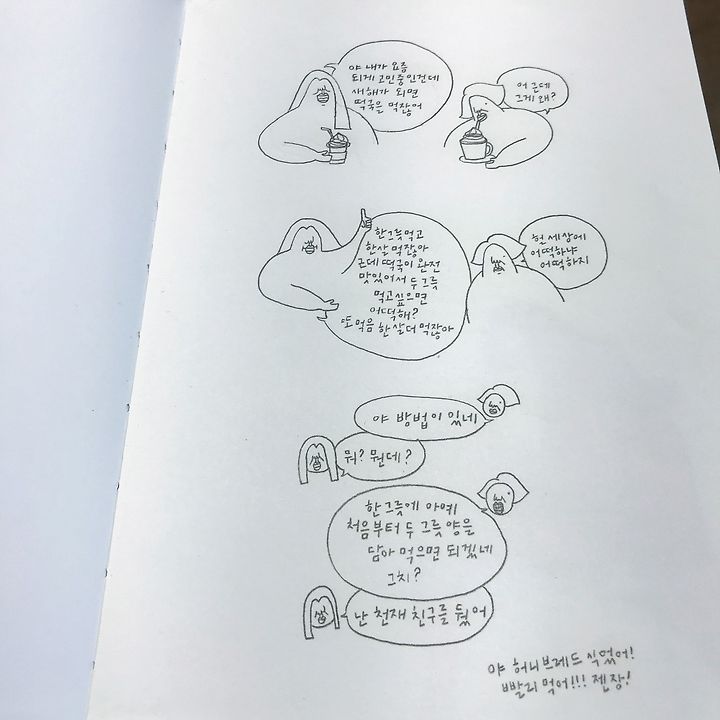 야 내가 요즘
되게 고민중인건데
새해가 되면
떡국을 먹잖어
어 근데
그게 왜?
한그릇먹고
한살 먹잖아
근데 떡국이 완전
맛있어서 두그릇
먹고싶으면
어떡해?
또 먹음 한 살 더 먹잖아
헌 세상에
어떡하냐
어떡하지
야 방법이 있네
뭐? 뭔데?
한 그릇에 아예
처음부터 두 그릇 양을
담아 먹으면 되겠네
그치?
난 천재 친구를 뒀어
야 허니브레드 식었어!
빨리 먹어!!! 젠장!